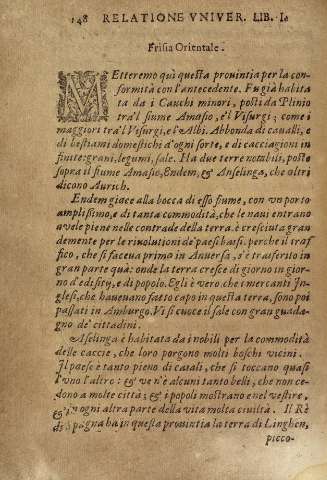 148 RELATIONE VNIVER. LIB. I.
Frisia Orientale.
METteremo quì questa prouintia per la con-
formità con l'antecedente. Fu già habita
ta da i Cauchi minori, posti da Plinio
tra'l fiume Amasio, e'l Visurgi; come i
maggiori tra'l Visurgi, e l'Albi. Abbonda di caualli, e
di bestiami domestichi d'ogni sorte, e di cacciagioni in
finite: grani, legumi, sale. Ha due terre notabili, poste
sopra il fiume Amasio, Endem, & Anselinga, che altri
dicono Aurich.
Endem giace alla bocca di esso fiume, con vn porto
amplissimo, e di tanta commodità, che le naui entrano
a vele piene nelle contrade della terra. è cresciuta gran
demente per le riuolutioni de' paesi bassi. perche il traf
fico, che si faceua prima in Anuersa, s'è trasferito in
gran parte quà: onde la terra cresce di giorno in gior-
no d'edifitij, e di popolo. Egli è vero che i mercanti In-
glesi, che haueuano fatto capo in questa terra, sono poi
passati in Amburgo. Vi si cuoce il sale con gran guada-
gno de' cittadini.
Aselinga è habitata da i nobili per la commodità
delle caccie, che loro porgono molti boschi vicini.
Il paese è tanto pieno di casali, che si toccano quasi
l'vno l'altro: & ve n'è alcuni tanto belli, che non ce-
dono a molte città; & i popoli mostrano e nel vestire,
& in ogni altra parte della vita molta ciuiltà. Il Rè
di Spagna ha in questa prouintia la terra di Linghen,
picco-